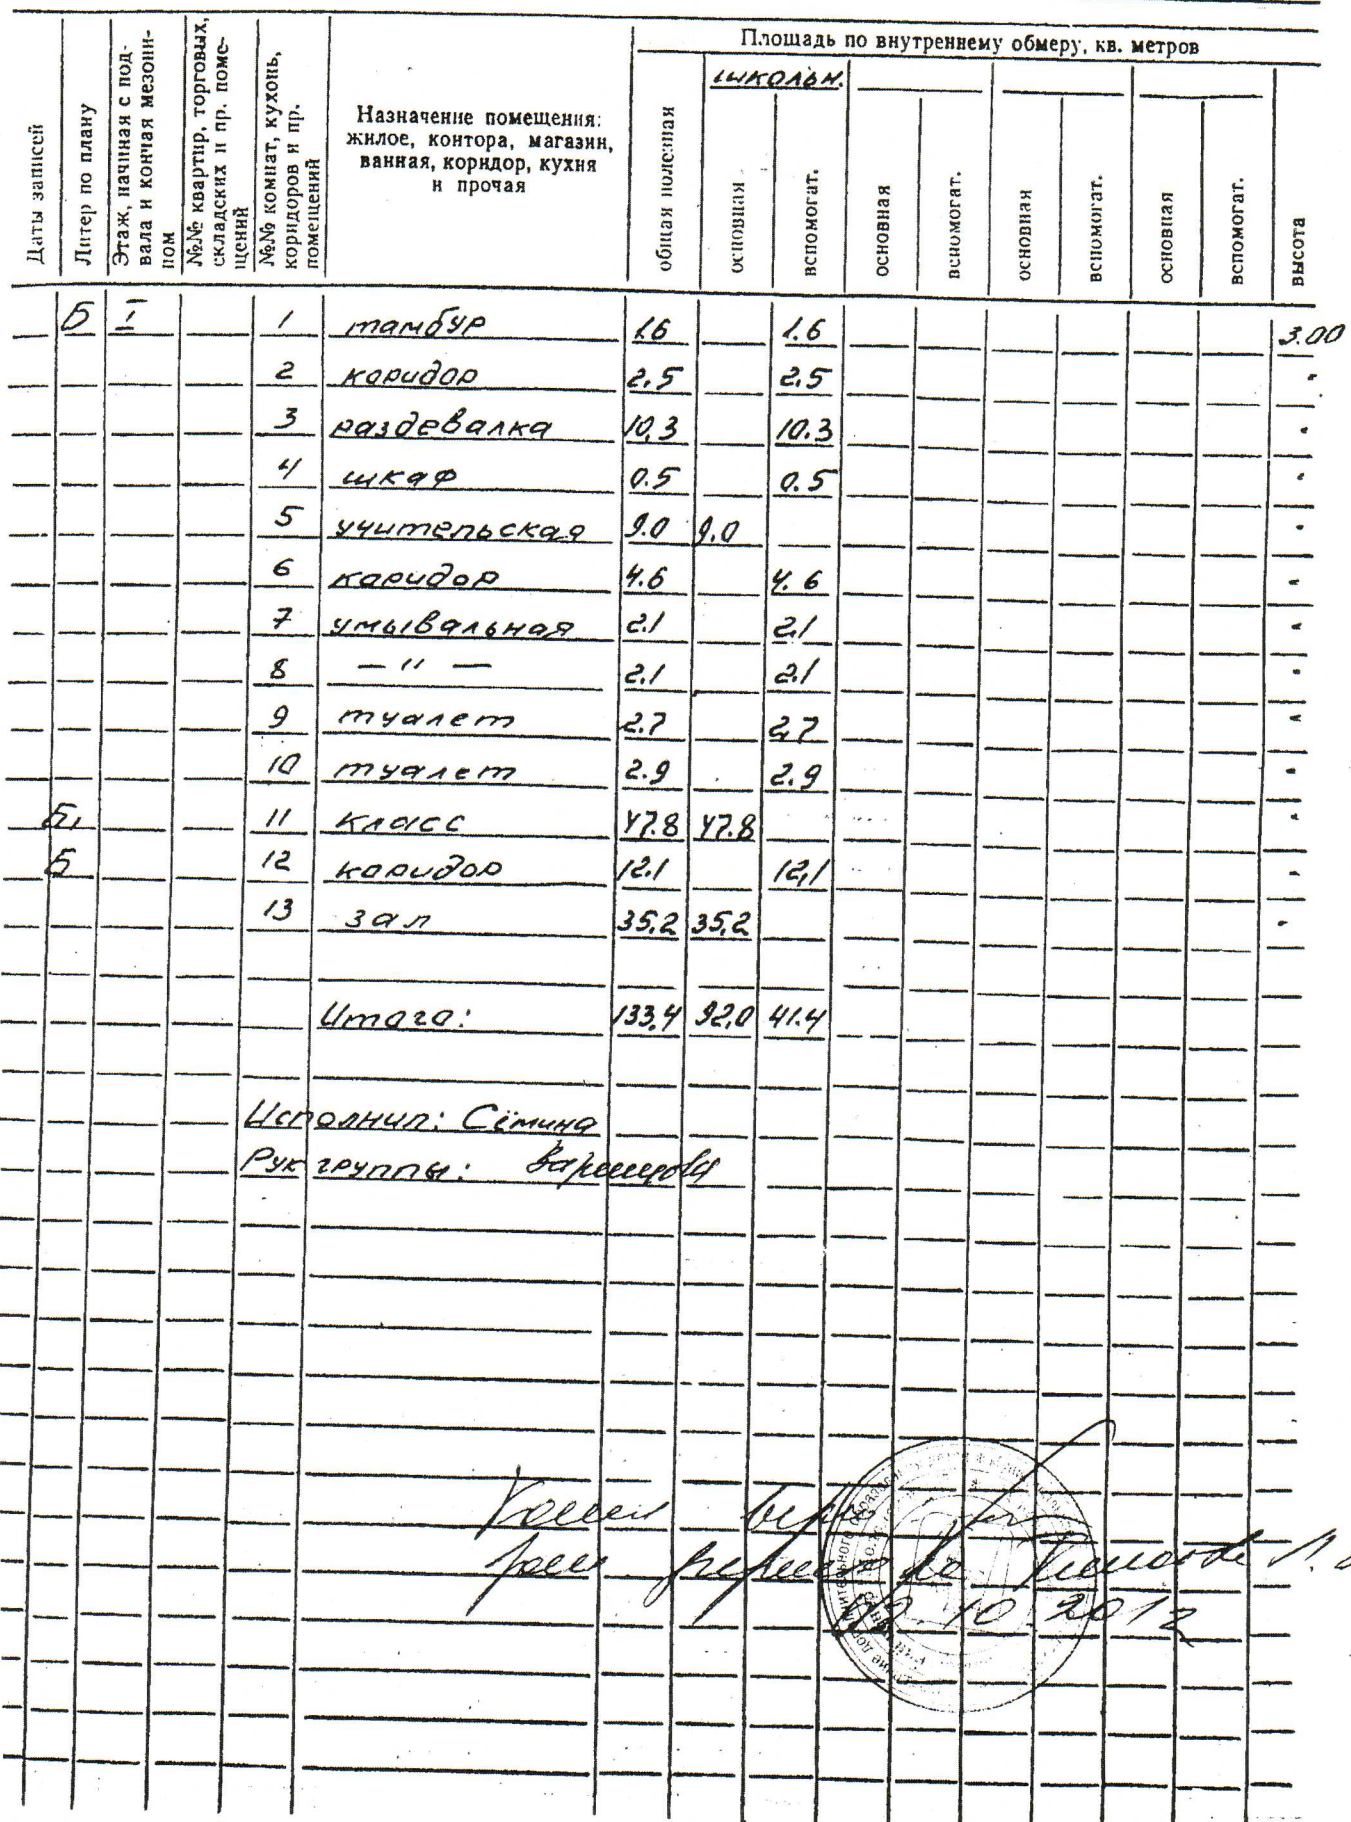 Площадь по внутреннему обмеру, кв. метров
школьн.
Даты записей
Литер по плану
Этаж, начиная с под-
вала и кончая мезони-
ном
№№ квартир, торговых,
складских и пр. поме-
щений
№№ комнат, кухонь,
коридоров и пр.
помещений
Назначение помещения:
жилое, контора, магазин,
ванная, коридор, кухня
и прочая
общая полезная
основная
вспомогат.
основная
вспомогат.
основная
вспомогат.
основная
вспомогат.
высота
Б I 1 тамбур 1.6 1.6 3.00
2 коридор 2.5 2.5 "
3 раздевалка 10,3 10.3 "
4 шкаф 0.5 0.5 "
5 учительская 9.0 9.0 "
6 коридор 4.6 4.6 "
7 умывальная 2.1 2.1 "
8 — " — 2.1 2.1 "
9 туалет 2.7 2.7 "
10 туалет 2.9 2.9 "
Б₁ 11 класс 47.8 47.8 "
Б 12 коридор 12.1 12,1 "
13 зал 35,2 35,2 "
Итого: 133,4 92,0 41.4
Исполнил: Сёмина
Рук группы:
10 2012